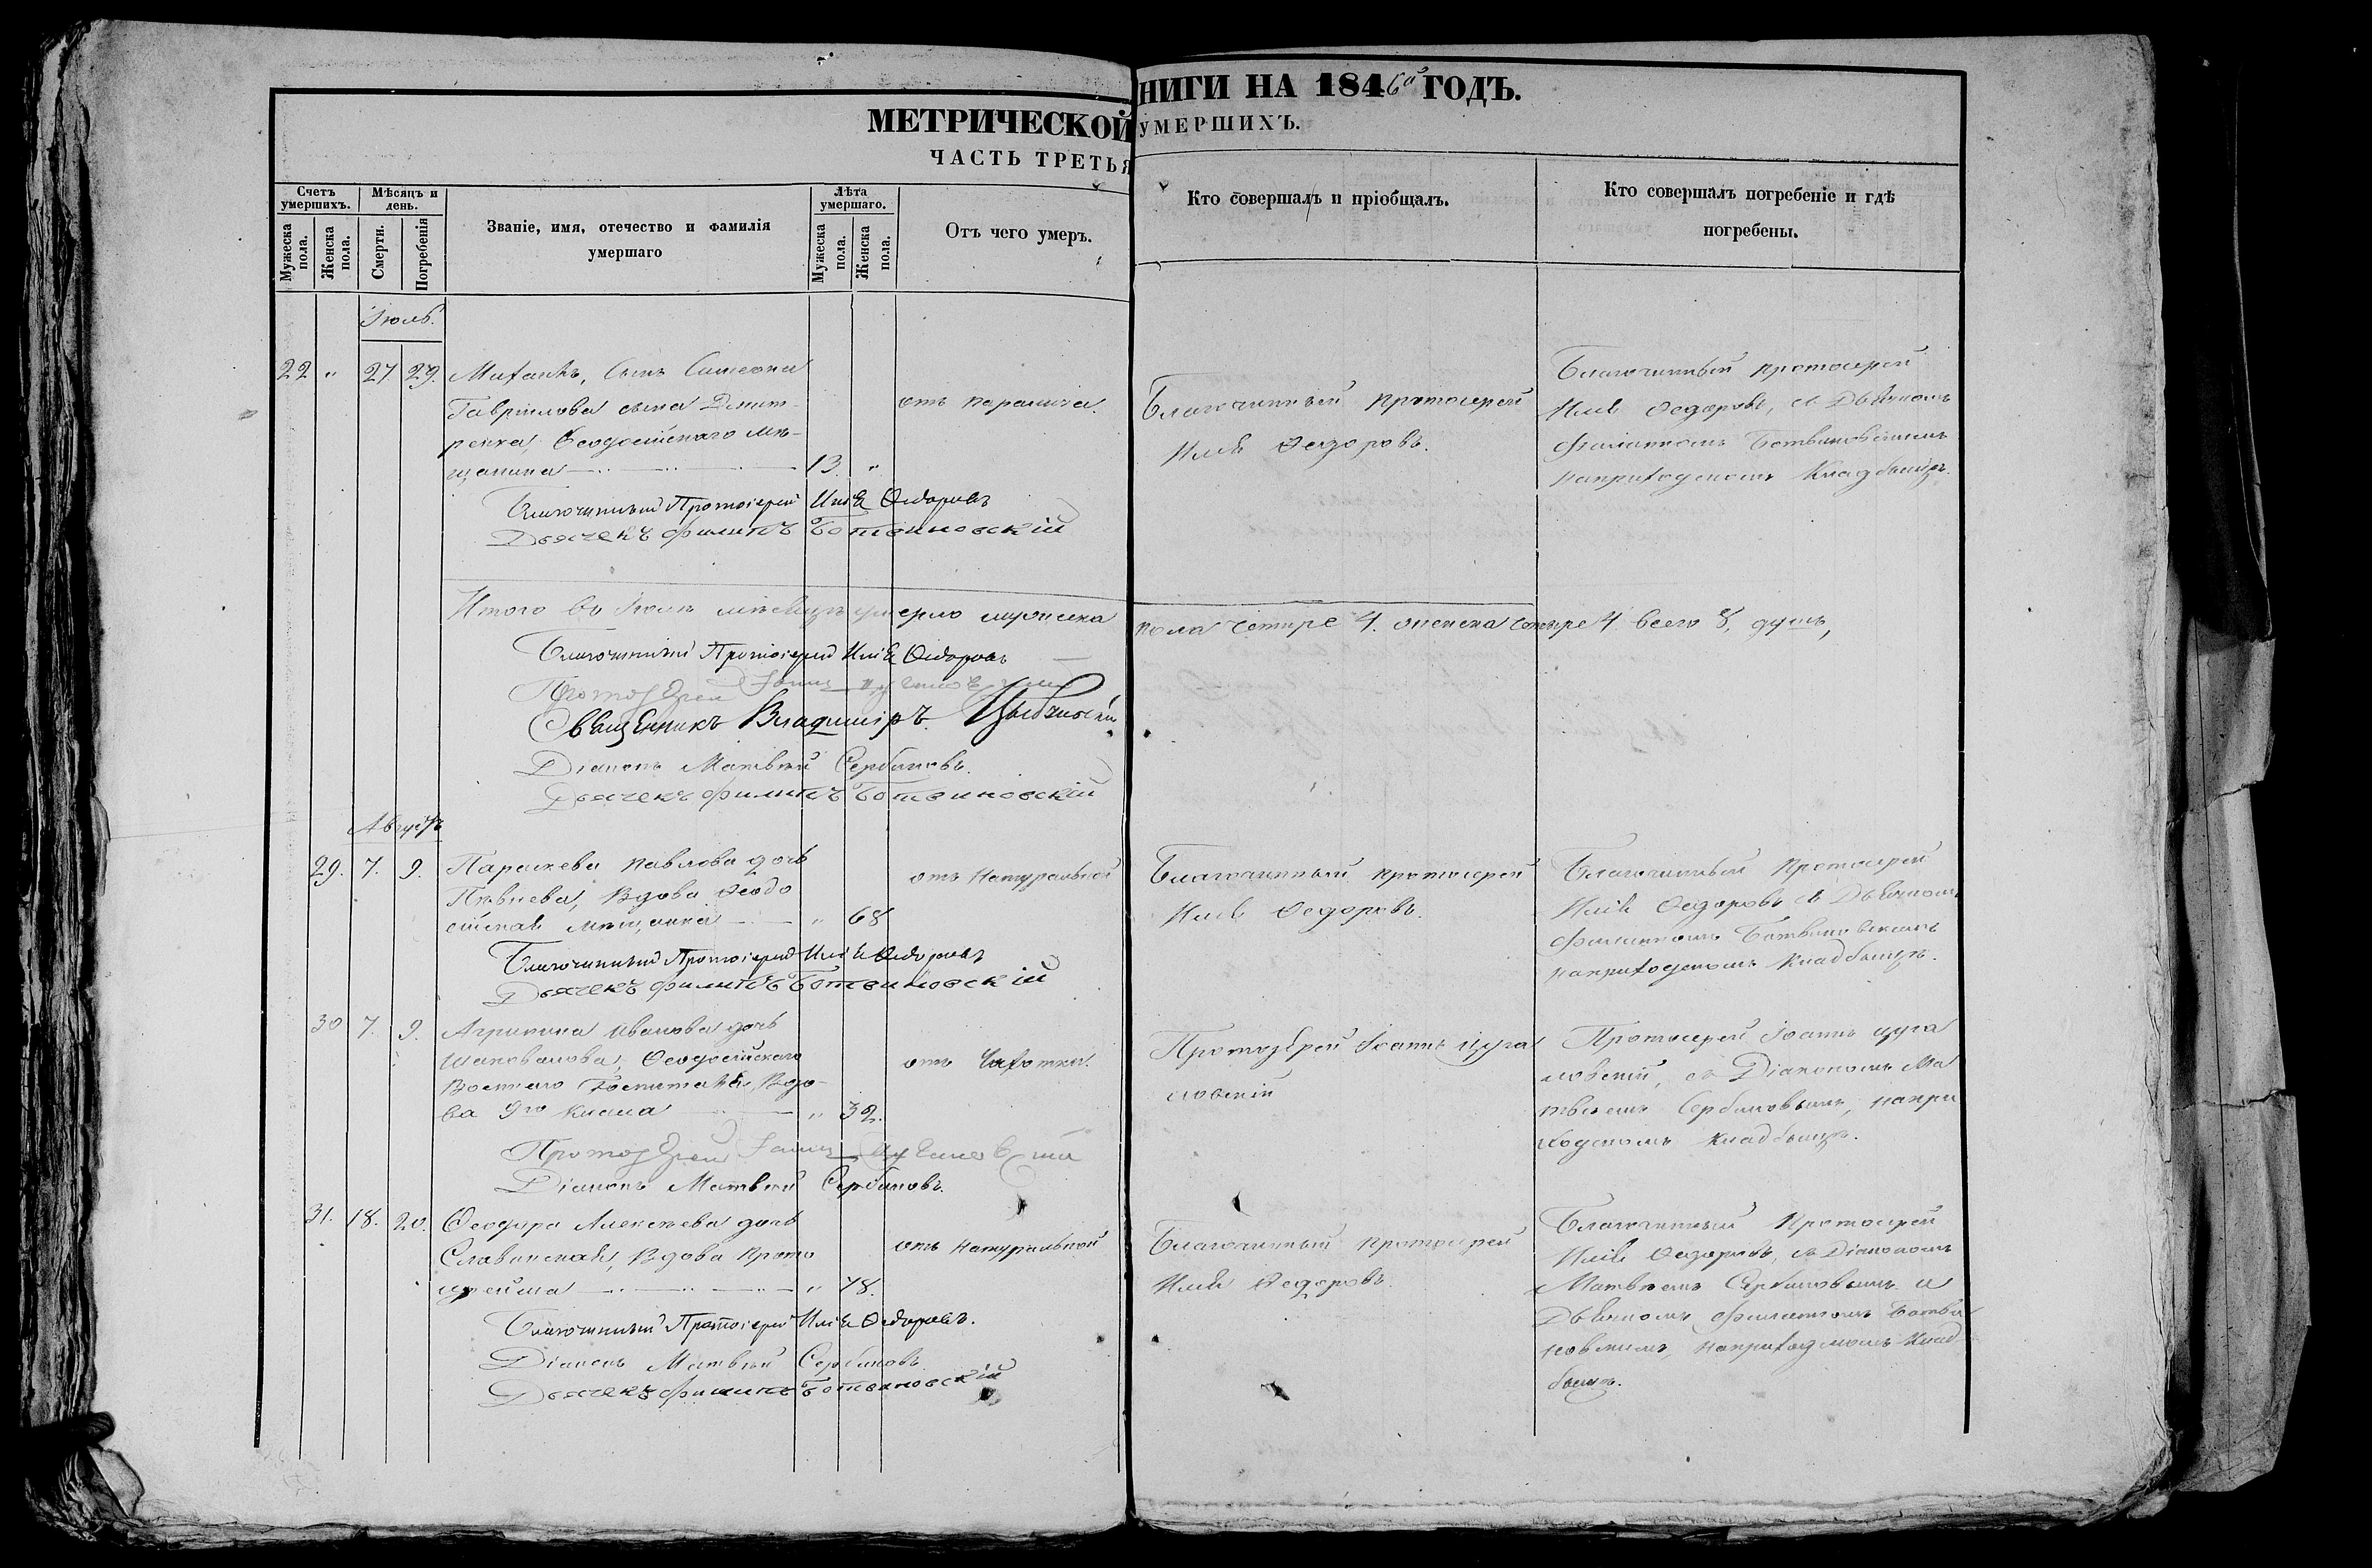 МЕТРИЧЕСКОЙ
НИГИ НА 1846й ГОДЪ.
ЧАСТЬ ТРЕТЬЯ
УМЕРШИХЪ.
Счетъ умершихъ.
Мѣсяцъ и день.
Званіе, имя, отечество и фамилія умершаго
Лѣта умершаго.
Отъ чего умеръ.
Кто совершалъ и пріобщалъ.
Кто совершалъ погребеніе и гдѣ погребены.
Мужеска пола.
Женска пола.
Смерти.
Погребенія
Мужеска пола.
Женска пола.
Іюль.
22 " 27 29. Михаилъ, сынъ Симеона
Гаврилова сына Дмит-
ренка, Ѳеодосійскаго мѣ-
щанина 13 "
отъ паралича.
Благочинный протоіерей
Илія Ѳедоровъ.
Благочинный протоіерей
Илія Ѳедоровъ, съ Дьячкомъ
Филиппомъ Ботвиновскимъ
наприходскомъ кладбищѣ.
Благочинный Протоіерей Илія Ѳедоровъ
Дьячекъ Филиппъ Ботвиновскій
Итого въ Іюлѣ мѣсяцѣ умерло мужеска пола четыре 4. женска четыре 4 всего 8. душъ,
Благочинный Протоіерей Илія Ѳедоровъ
Протоіерей Іоаннъ
Священникъ Владиміръ
Діаконъ Матвѣй Сербиновъ.
Дьячекъ Филиппъ Ботвиновскій
Августъ
29. 7. 9. Параскева Павлова дочь
Пѣвнева, Вдова Ѳеодо
сійская мѣщанка " 68
отъ натуральной
Благочинный протоіерей
Илія Ѳедоровъ.
Благочинный протоіерей
Илія Ѳедоровъ съ Дьячкомъ
Филиппомъ Ботвиновскимъ
наприходскомъ кладбищѣ.
Благочинный Протоіерей Илія Ѳедоровъ
Дьячекъ Филиппъ Ботвиновскій
30 7. 9. Агрипина Иванова дочь
Шаповалова, Ѳеодосійскаго
Военнаго Госпиталя, Вдо-
ва 9го класса " 32.
отъ Чахотки.
Протоіерей Іоаннъ Цуга
ловскій, съ Діакономъ Ма
твѣемъ Сербиновымъ, напри
ходскомъ кладбищѣ.
Протоіерей Іоаннъ
Діаконъ Матвѣй Сербиновъ.
31. 18. 20. Ѳеодора Алексѣева дочь
Славинская, Вдова прото
іерейша " 78.
отъ натуральной
Благочинный протоіерей
Илія Ѳедоровъ.
Благочинный протоіерей
Илія Ѳедоровъ, съ Діакономъ
Матвѣемъ Сербиновымъ и
Дьячкомъ Филиппомъ Ботви
новскимъ, наприходскомъ клад
бищѣ.
Благочинный Протоіерей Илія Ѳедоровъ.
Діаконъ Матвѣй Сербиновъ
Дьячекъ Филиппъ Ботвиновскій